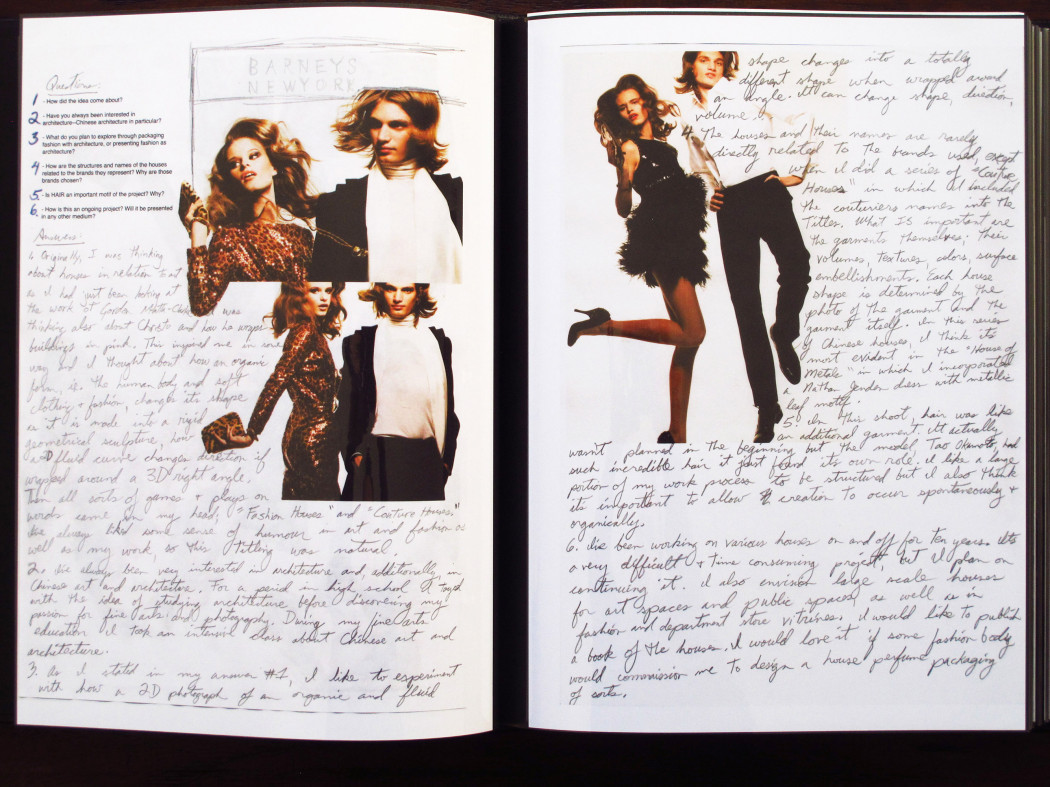 BARNEYS
NEW YORK
Questions:
1 - How did the idea come about?
2 - Have you always been interested in
architecture--Chinese architecture in particular?
3 - What do you plan to explore through packaging
fashion with architecture, or presenting fashion as
architecture?
4 - How are the structures and names of the houses
related to the brands they represent? Why are those
brands chosen?
5 - Is HAIR an important motif of the project? Why?
6 - How is this an ongoing project? Will it be presented
in any other medium?
Answers:
1. Originally, I was thinking
about houses in relation to art
as I had just been looking at
the work of Gordon Matta-Clark. I was
thinking also about Christo and how he wraps
buildings in pink. This inspired me in some
way and I thought about how an organic
form, ie. the human body and soft
clothing + fashion, changes its shape
as it is made into a rigid
geometrical sculpture, how
a 2D fluid curve changes direction if
wrapped around a 3D right angle.
Then all sorts of games + plays on
words came in my head; "Fashion Houses" and "Couture Houses."
I've always liked some sense of humour in art and fashion as
well as my work so this titling was natural.
2. I've always been very interested in architecture and, additionally, in
Chinese art and architecture. For a period in high school I toyed
with the idea of studying architecture before discovering my
passion for fine arts and photography. During my fine arts
education I took an intensive class about Chinese art and
architecture.
3. As I stated in my answer #1, I like to experiment
with how a 2D photograph of an organic and fluid
shape changes into a totally
different shape when wrapped around
an angle. It can change shape, direction,
volume.
4. The houses and their names are rarely
directly related to the brands used, except
when I did a series of "Couture
Houses" in which I included
the couturiers names into the
titles. What IS important are
the garments themselves; their
volumes, textures, colors, surface
embellishments. Each house
shape is determined by the
photo of the garment and the
garment itself. In this series
of Chinese houses, I think its
most evident in the "House of
Metale" in which I incorporated
a Nathan Jenden dress with metallic
leaf motif.
5. In this shoot, hair was like
an additional garment. It actually
wasn't planned in the beginning but the model, Tao Okamoto, had
such incredible hair it just found its own role. I like a large
portion of my work process to be structured but I also think
its important to allow creation to occur spontaneously +
organically.
6. I've been working on various houses on and off for ten years. Its
a very difficult + time consuming project, but I plan on
continuing it. I also envision large scale houses
for art spaces and public spaces, as well as in
fashion and department store vitrines. I would like to publish
a book of the houses. I would love it if some fashion body
would commission me to design a house perfume packaging
of sorts.